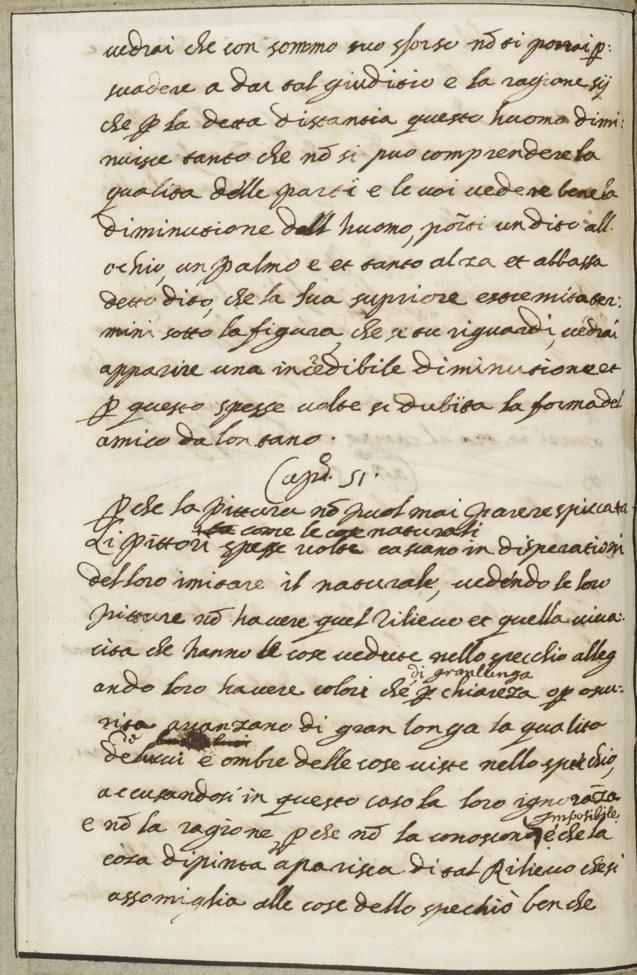 vedrai che con sommo tuo sforso nõ ti porrai p:
suadere a dar tal giuditio e la ragione sij
che p la detta distantia questo huomo dimi:
nuisce tanto che nõ si puo comprendere la
qualita delle parti e le voi vedere bene la
diminutione dell huomo, porsi un dito all
ochio, un palmo e et tanto alza et abbassa
detto dito, che la sua supriore estremita ter:
mini sotto la figura, che se tu riguardi, vedrai
apparire una incredibile diminutione et
p questo spesse volte si dubita la forma del
amico da lontano.
Cap.º 51.
p che la pittura nõ puol mai parere spiccata
come le cose naturali
Li pittori spesse volte cascano in disperationi
del loro imitare il naturale, vedẽdo le loro
pitture nõ havere quel rilievo et quella viva:
cita che hanno le cose vedute nello specchio alleg
di gran lunga
ando loro havere colori che p chiareza o p oscu:
rita avanzano di gran longa la qualita
de lucci e ombre delle cose viste nello spechio,
accusandosi in questo caso la loro ignorãza
imposibile
e nõ la ragione p che nõ la conoscono è che la
cosa dipinta aparisca di tal Rilievo che si
assomiglia alle cose dello spechio ben che